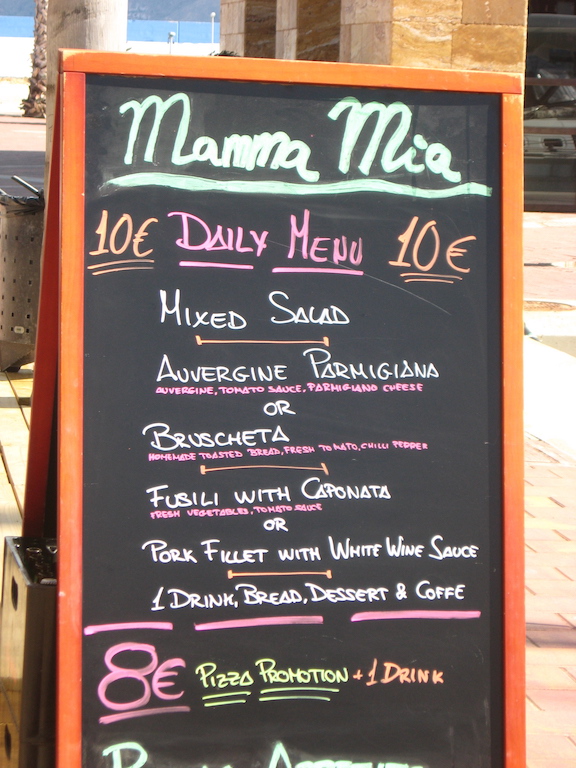 Mamma Mia
10€ DAILY MENU 10€
MIXED SALAD
AUVERGINE PARMIGIANA
AUVERGINE, TOMATO SAUCE, PARMIGIANO CHEESE
OR
BRUSCHETA
HOMEMADE TOASTED BREAD, FRESH TOMATO, CHILLI PEPPER
FUSILI WITH CAPONATA
FRESH VEGETABLES, TOMATO SAUCE
OR
PORK FILLET WITH WHITE WINE SAUCE
1 DRINK, BREAD, DESSERT & COFFE
8€ PIZZA PROMOTION + 1 DRINK